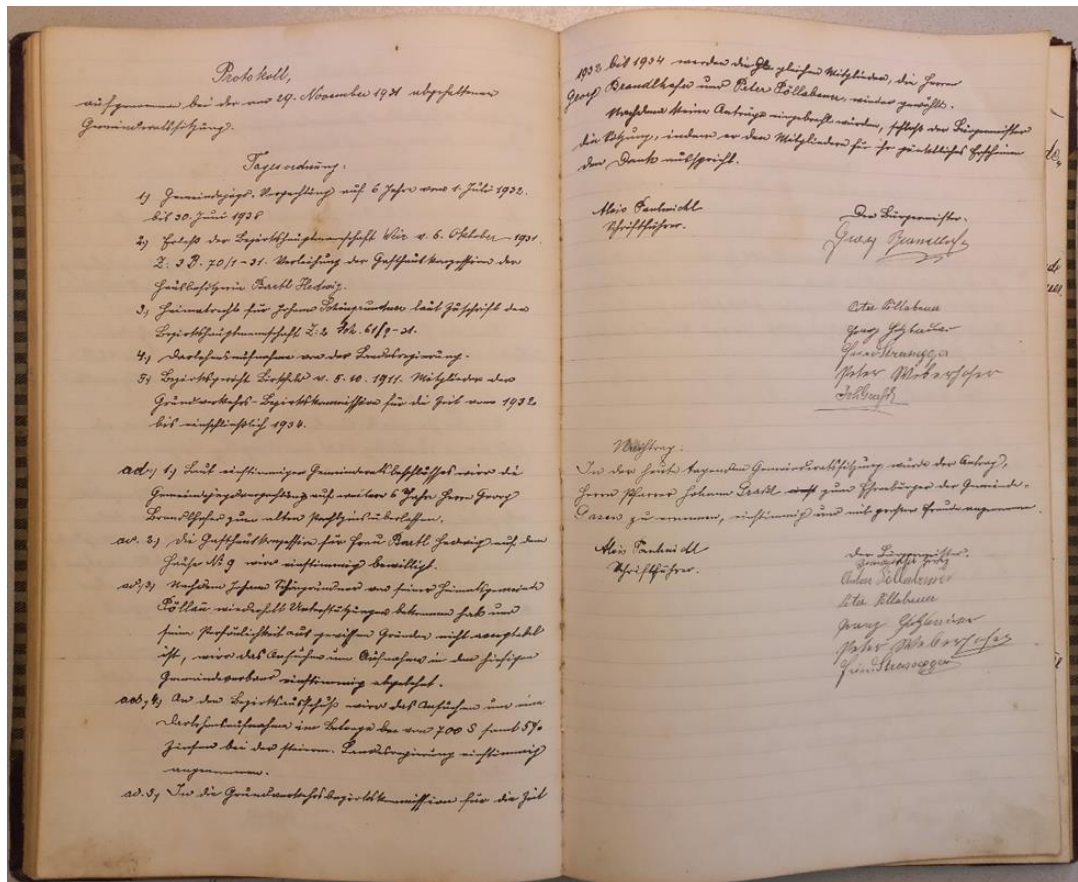 Protokoll,
aufgenommen bei der am 29. November 1931 abgehaltenen
Gemeinderatssitzung.
Tagesordnung.
1) Gemeindejagd-Verpachtung auf 6 Jahre vom 1. Juli 1932.
bis 30. Juni 1938
2) Erlaß der Bezirkshauptmannschaft Weiz v. 6. Oktober 1931.
Z: 3 B. 70/1-31. Verleihung der Gasthauskonzession der
Hausbesitzerin Bartl Hedwig.
3) Heimatrecht für Johann Schöngrundner laut Zuschrift der
Bezirkshauptmannschaft Z: 2 61/9-31.
4) Darlehensaufnahme von der Landesregierung.
5) Bezirksgericht Birkfeld v. 8. 10. 1911. Mitglieder der
Grundverkehrs-Bezirkskommission für die Zeit vom 1932
bis einschließlich 1934.
ad. 1) Laut einstimmigen Gemeinderatsbeschlusses wird die
Gemeindejagdverpachtung auf weitere 6 Jahre Herrn Georg
Brandlhofer zum alten Pachtzins überlassen.
ad. 2) Die Gasthauskonzession für Frau Bartl Hedwig auf dem
Hause Nº 9 wird einstimmig bewilligt.
ad. 3) Nachdem Johann Schöngrundner von seiner Heimatgemeinde
Pöllau wiederholt Unterstützungen bekommen hat und
seine Persönlichkeit aus gewissen Gründen nicht acceptabel
ist, wird das Ansuchen um Aufnahme in den hiesigen
Gemeindeverband einstimmig abgelehnt.
ad. 4) An den Bezirksausschuß wird das Ansuchen um eine
Darlehensaufnahme im Betrage von 700 S samt 5%
Zinsen bei der steierm. Landesregierung einstimmig
angenommen.
ad. 5) In die Grundverkehrsbezirkskommission für die Zeit
1932 bis 1934 werden die gleichen Mitglieder, die Herren
Georg Brandlhofer und Peter Pöllabauer, wieder gewählt.
Nachdem keine Anträge eingebracht wurden, schließt der Bürgermeister
die Sitzung, indem er den Mitgliedern für ihr pünktliches Erscheinen
den Dank ausspricht.
Alois
Schriftführer.
Der Bürgermeister.
Georg Brandlhofer
Peter Pöllabauer
Georg
Strassegger
Peter Weberhofer
Nachtrag:
In der heute tagenden Gemeinderatssitzung wurde der Antrag,
Herrn Pfarrer Johann Graßl zum Ehrenbürger der Gemeinde
Gasen zu ernennen, einstimmig und mit großer Freude angenommen.
Alois
Schriftführer.
Der Bürgermeister.
Pöllabauer
Peter Pöllabauer
Georg
Peter Weberhofer
Strassegger